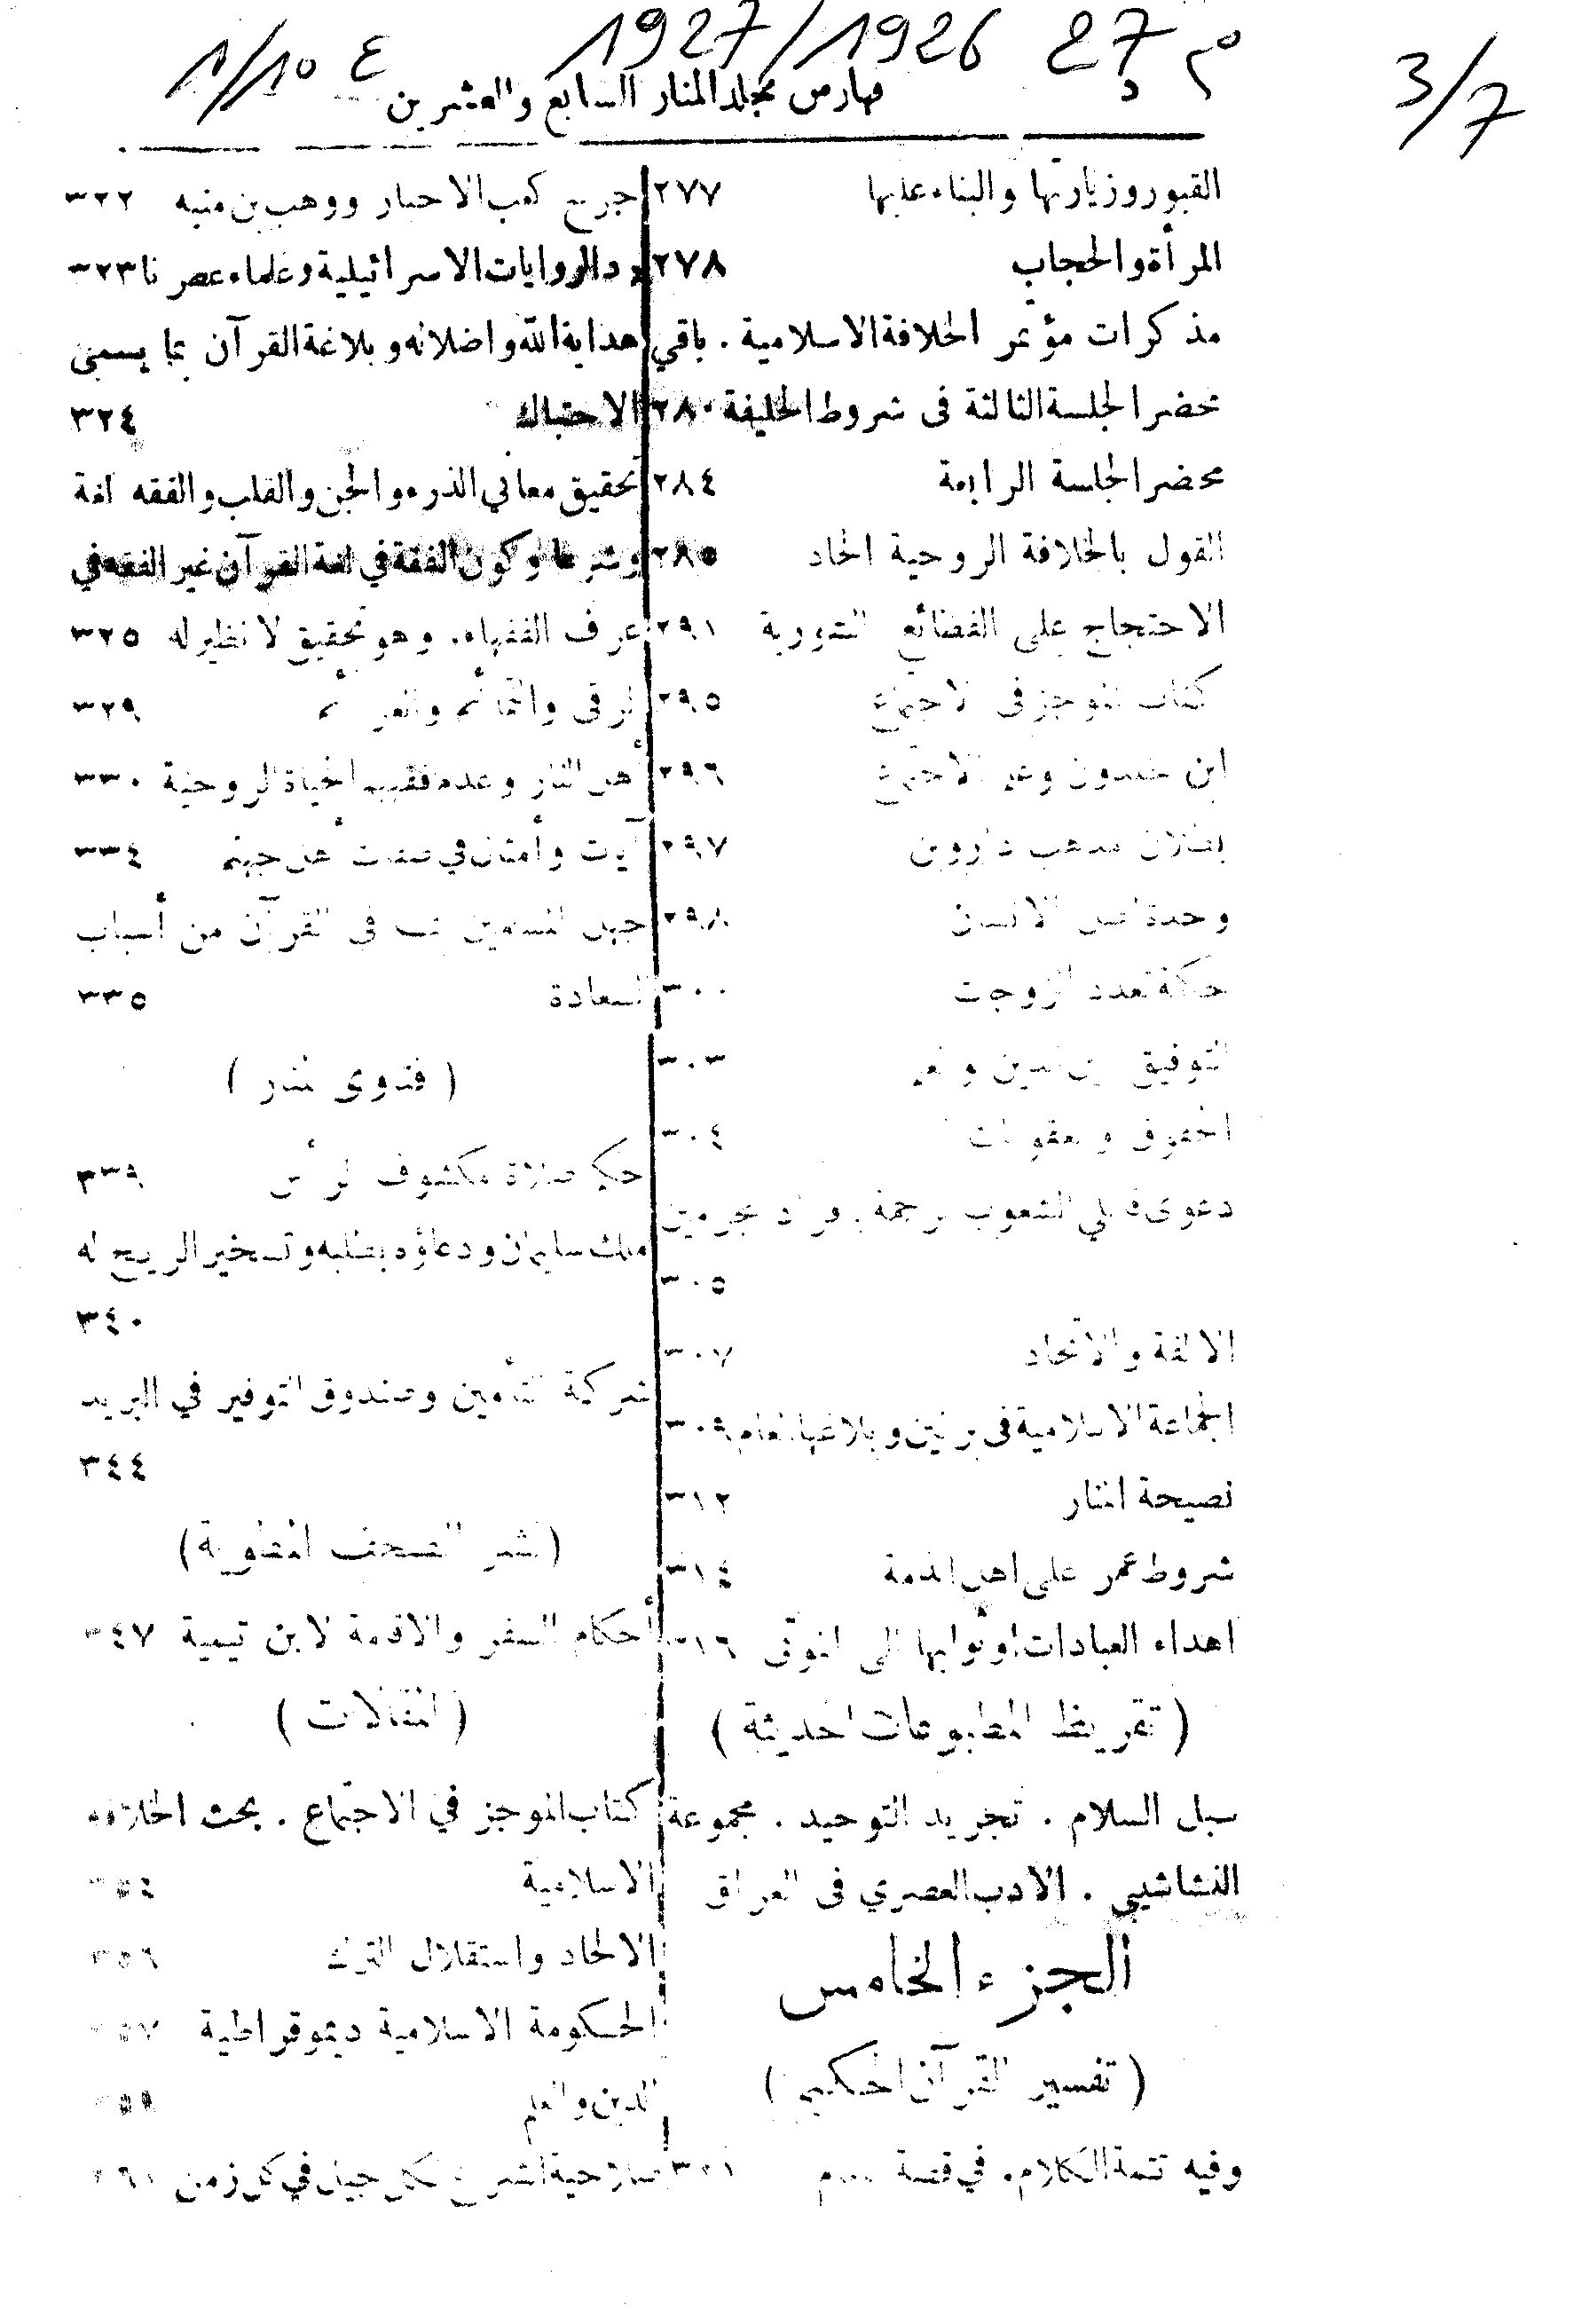 1/10 ع 1927/1926 م 27 د
3/7
فهارس مجلد المنار السابع والعشرين
القبور وزيارتها والبناء عليها ٢٧٧
المرأة والحجاب ٢٧٨
مذكرات مؤتمر الخلافة الاسلامية . باقي
محضر الجلسة الثالثة في شروط الخليفة ٢٨٠
محضر الجلسة الرابعة ٢٨٤
القول بالخلافة الروحية الحاد ٢٨٥
الاحتجاج على الفظائع السورية ٢٩١
كتاب الموجز في الاجتماع ٢٩٥
ابن خلدون وعلم الاجتماع ٢٩٦
بطلان مذهب داروين ٢٩٧
وحدة اصل الانسان ٢٩٨
حكمة تعدد الزوجات ٣٠٠
التوفيق بين الدين والعلم ٣٠٣
الحقوق والعقوبات ٣٠٤
دعوى الشعوب مجرمين
٣٠٥
الالفة والاتحاد ٣٠٧
الجماعة الاسلامية في برلين وبلاغها العام ٣٠٩
نصيحة المنار ٣١٢
شروط عمر على اهل الذمة ٣١٤
اهداء العبادات او ثوابها الى الموتى ٣١٦
( تقريظ المطبوعات الحديثة )
سبل السلام . تجريد التوحيد . مجموعة
النشاشيبي . الادب العصري في العراق
الجزء الخامس
( تفسير القرآن الحكيم )
وفيه تتمة الكلام في قصة ٣٢١
جرح كعب الاحبار ووهب بن منبه ٣٢٢
رد الروايات الاسرائيلية وعلماء عصرنا ٣٢٣
هداية الله واضلاله وبلاغة القرآن بما يسمى
الاحتباك ٣٢٤
تحقيق معاني الذرء والجن والقلب والفقه لغة
وشرعا وكون الفقه في لغة القرآن غير الفقه في
عرف الفقهاء. وهو تحقيق لا نظير له ٣٢٥
الرقى والتمائم والعزائم ٣٢٩
أهل النار وعدم فقههم الحياة الروحية ٣٣٠
آيات وأمثال في صفات أهل جهنم ٣٣٤
جهل المسلمين بما في القرآن من أسباب
السعادة ٣٣٥
( فتاوى المنار )
حكم صلاة مكشوف الرأس ٣٣٩
ملك سليمان ودعاؤه بطلبه وتسخير الريح له
٣٤٠
شركة التأمين وصندوق التوفير في البريد
٣٤٤
(نشر الصحف المطوية)
أحكام السفر والاقامة لابن تيمية ٣٤٧
( المقالات )
كتاب الموجز في الاجتماع . بحث الخلافة
الاسلامية ٣٥٤
الالحاد واستقلال الترك ٣٥٦
الحكومة الاسلامية ديموقراطية ٣٥٧
الدين والعلم ٣٥٩
صلاحية الشرع لكل جيل في كل زمن